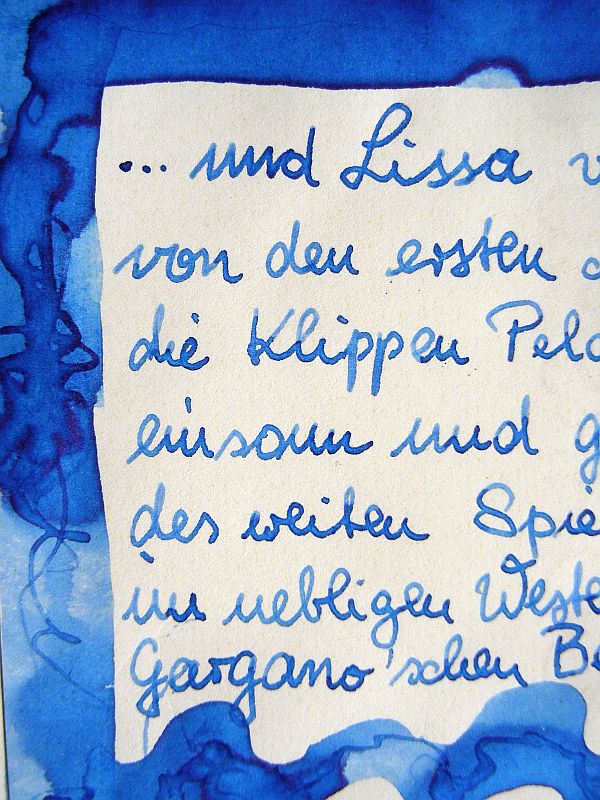 ... und Lissa
von den ersten
die Klippen
einsam und
des weiten
im nebligen
Gargano'schen